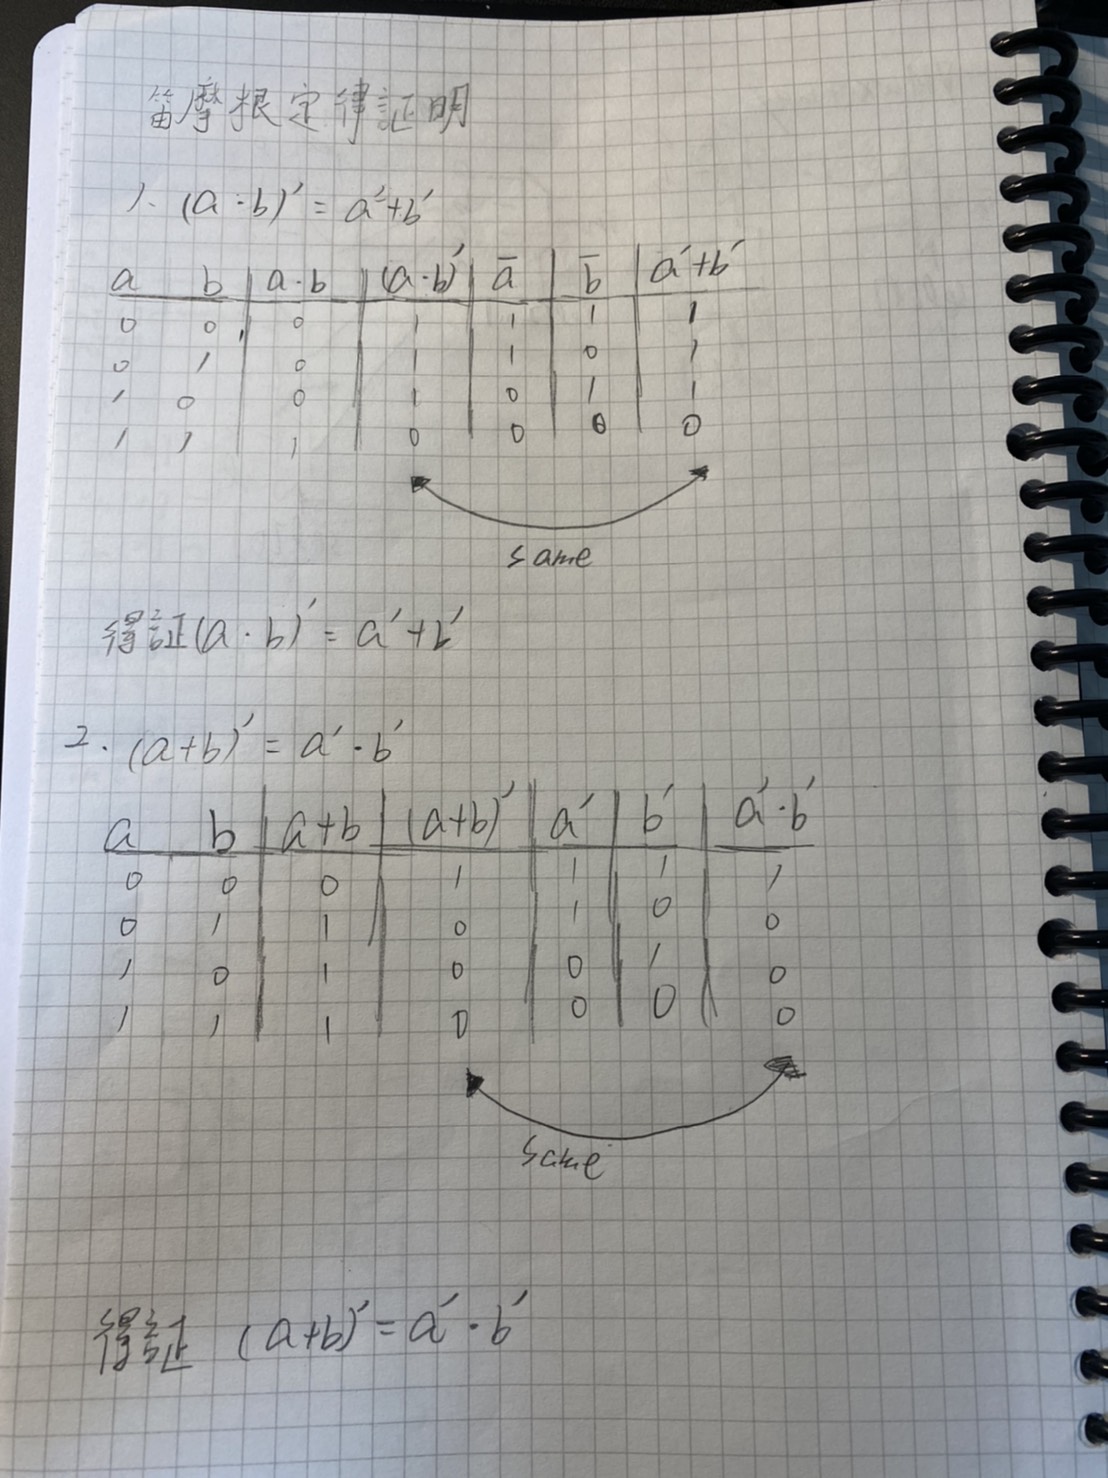 笛摩根定律証明
1. (a·b)' = a'+b'
a b a·b (a·b)' a̅ b̅ a'+b'
0 0 0 1 1 1 1
0 1 0 1 1 0 1
1 0 0 1 0 1 1
1 1 1 0 0 0 0
same
得証(a·b)' = a'+b'
2. (a+b)' = a'·b'
a b a+b (a+b)' a' b' a'·b'
0 0 0 1 1 1 1
0 1 1 0 1 0 0
1 0 1 0 0 1 0
1 1 1 0 0 0 0
same
得証 (a+b)' = a'·b'